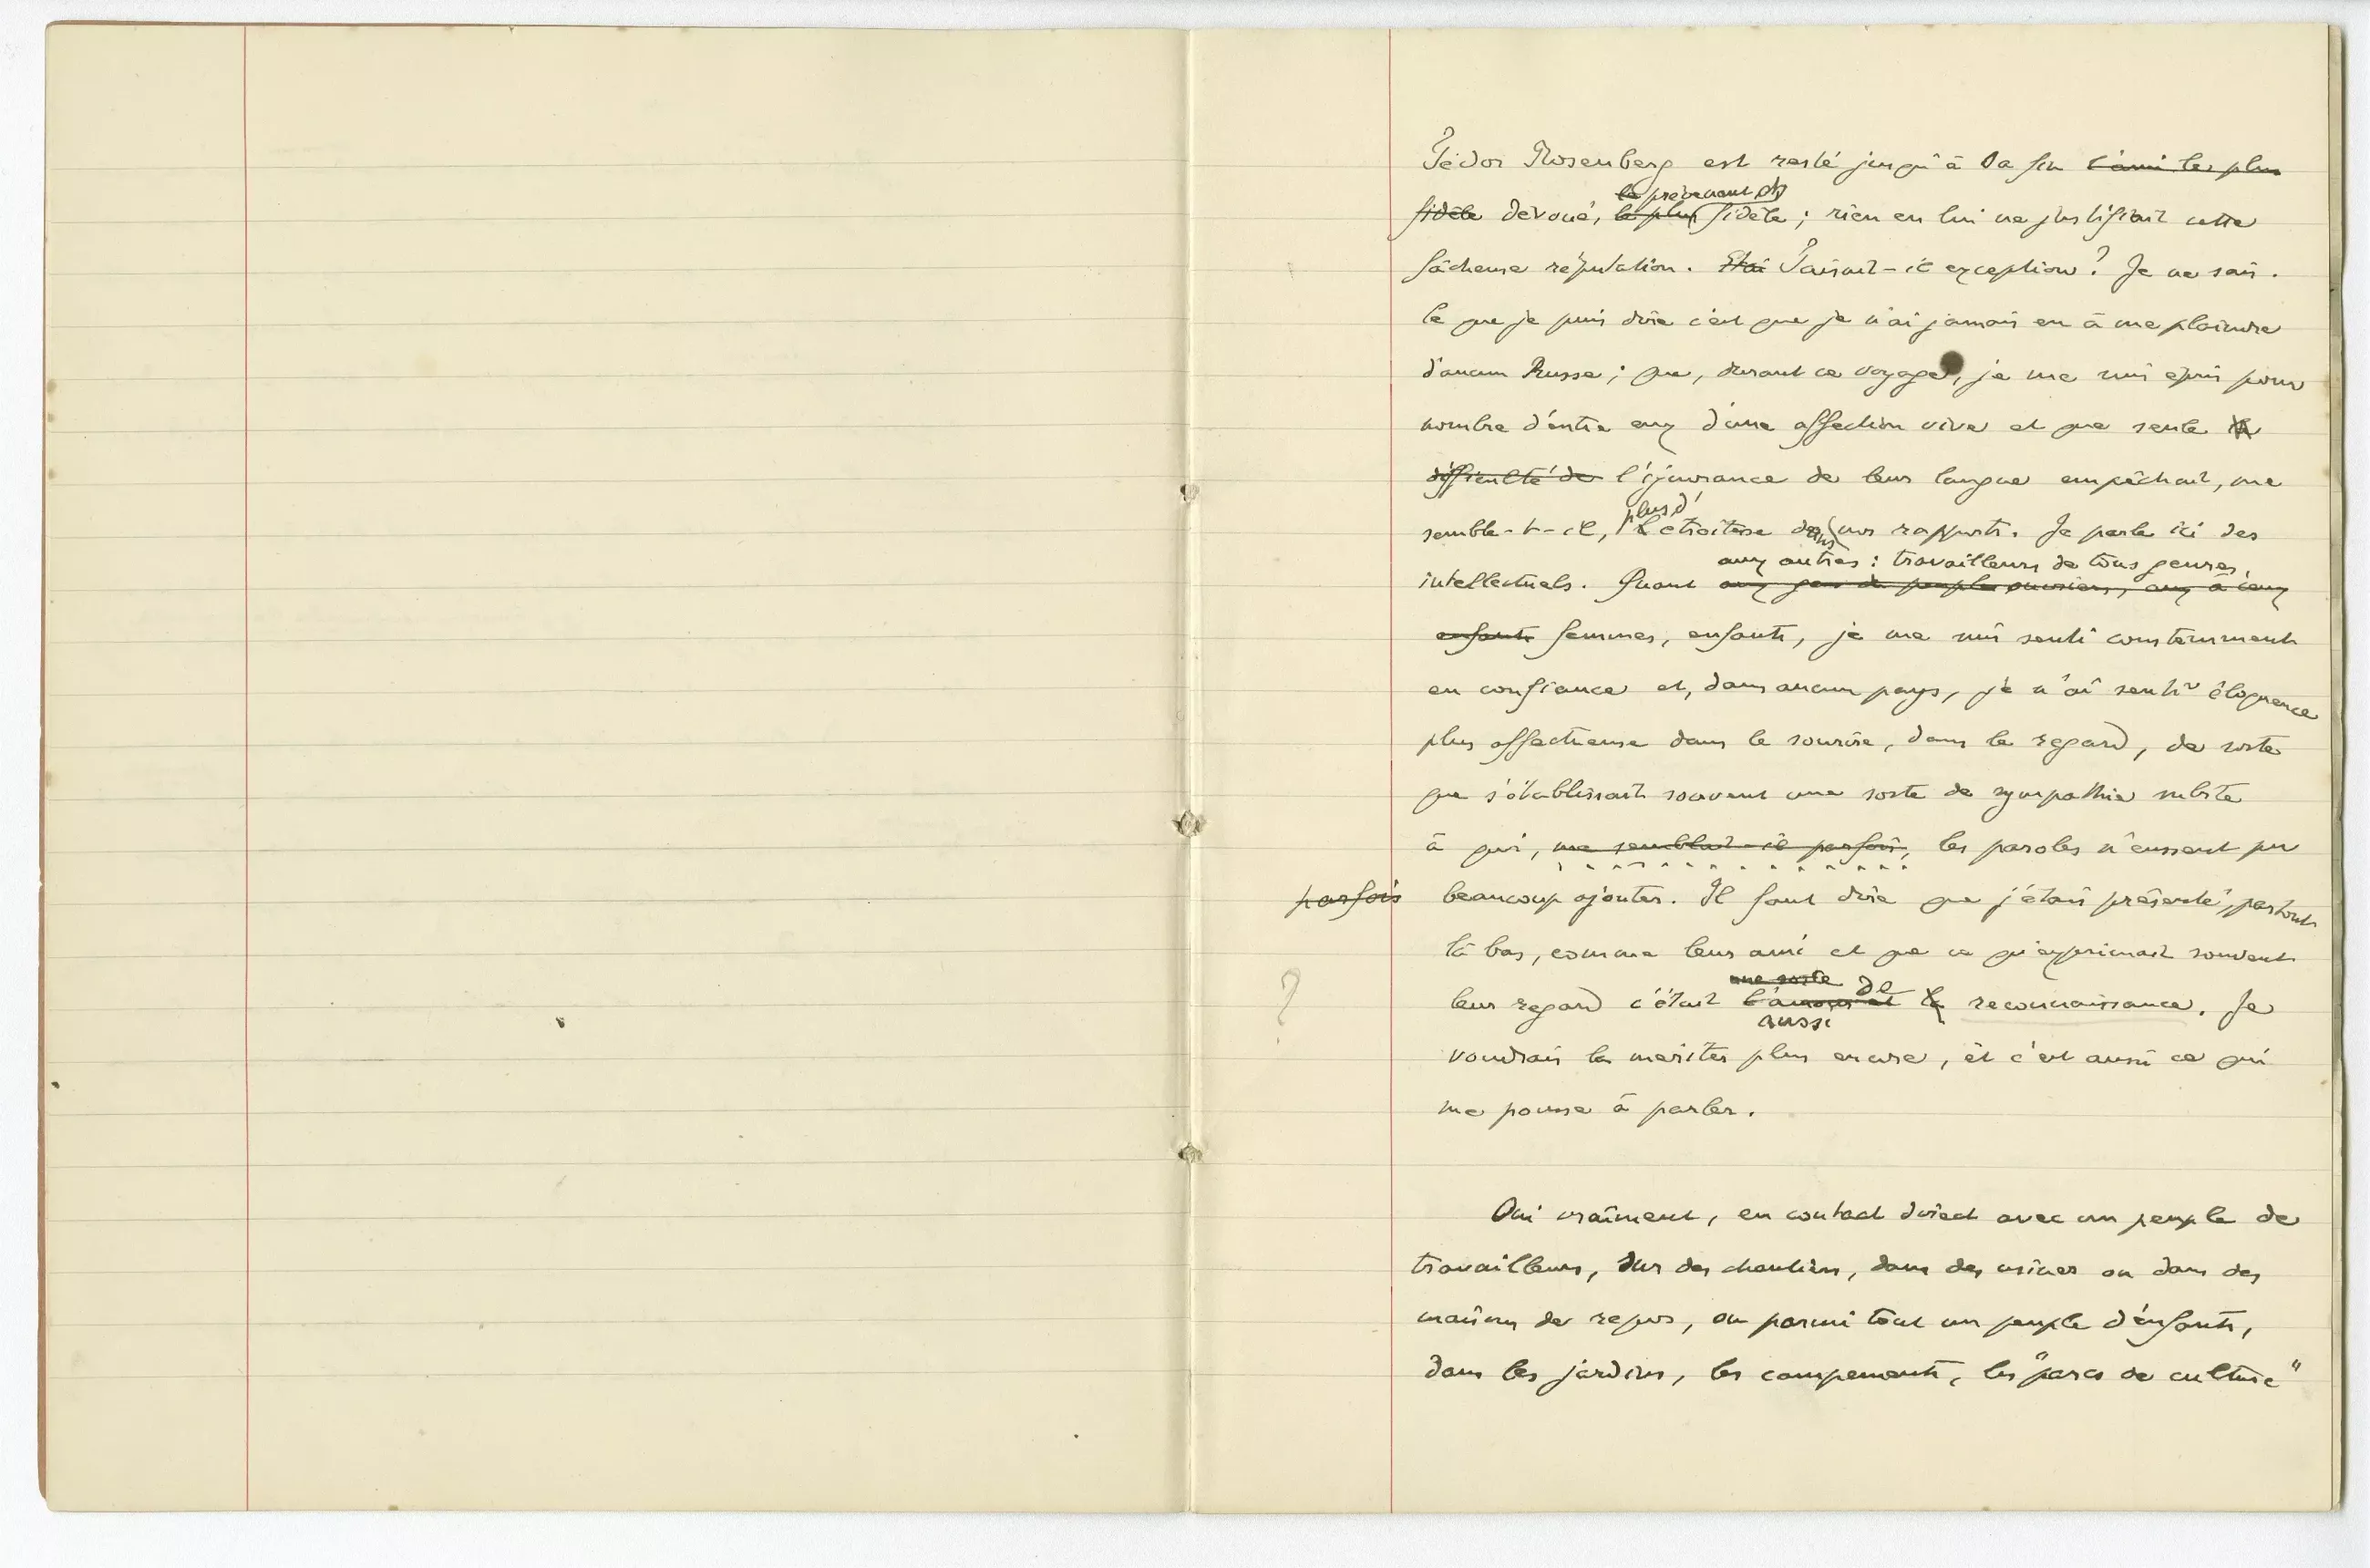 Fédor Rosenberg est resté jusqu'à la fin l'ami le plus
le prévenant et
fidèle dévoué, le plus fidèle ; rien en lui ne justifiait cette
fâcheuse réputation. Etai Faisait-il exception ? Je ne sais.
Ce que je puis dire c'est que je n'ai jamais eu à me plaindre
d'aucun Russe ; que, durant ce voyage, je me suis épris pour
nombre d'entre eux d'une affection vive et que seule la
difficulté de l'ignorance de leur langue empêchait, me
plus d'
semble-t-il, étroitesse dans nos rapports. Je parle ici des
aux autres : travailleurs de tous genres,
intellectuels. Quant aux gens du peuple ouvriers, aux à ceux
enfants femmes, enfants, je me suis senti constamment
en confiance et, dans aucun pays, je n'ai senti éloquence
plus affectueuse dans le sourire, dans le regard, de sorte
que s'établissait souvent une sorte de sympathie subite
à qui, me semblait-il parfois, les paroles n'eussent pu
parfois beaucoup ajouter. Il faut dire que j'étais présenté, partout
là bas, comme leur ami et que ce qu'exprimait souvent
une sorte de
? leur regard c'était l'amour et la reconnaissance. Je
aussi
voudrais la mériter plus encore, et c'est aussi ce qui
me pousse à parler.
Oui vraiment, en contact direct avec un peuple de
travailleurs, sur des chantiers, dans des usines ou dans des
maisons de repos, ou parmi tout un peuple d'enfants,
dans les jardins, les campements, les "parcs de culture"